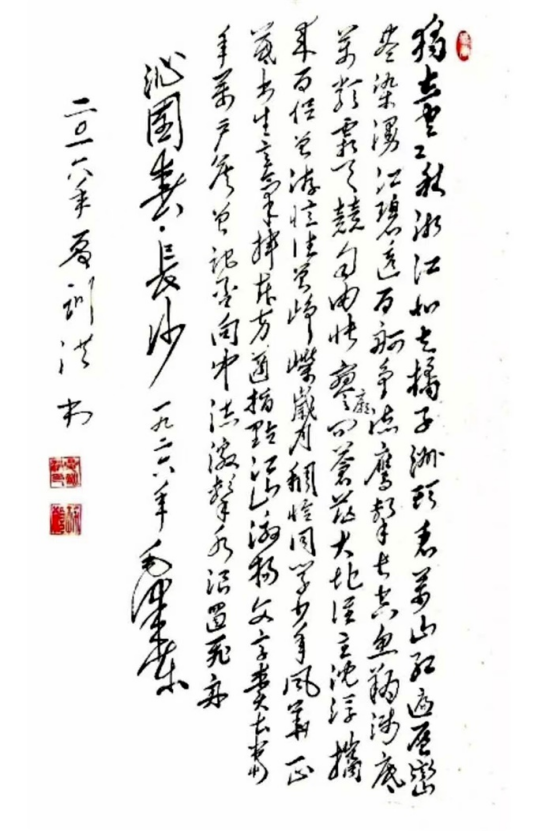 独立寒秋湘江北去橘子洲头看萬山红遍层
尽染漫江碧透百舸争流鹰击长空鱼翔浅底
萬類霜天競自由怅寥廓问蒼茫大地谁主沈浮携
来百侣曾游忆往昔峥嵘歲月稠恰同学少年风华正
茂书生意氣挥斥方遒指點江山激扬文字粪土当
年萬户侯曾记否向中流击水浪遏飞舟
沁園春·長沙 一九二六年 毛泽东
二〇一六年 夏 训洪书